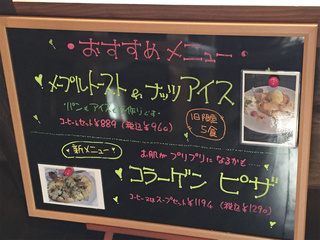 • おすすめメニュー •
メープルトースト & ナッツアイス
パンとアイスも手作りです
コーヒーセット¥889 (税込¥960)
1日限定
5食
新メニュー
お肌がプリプリになるかと....
コラーゲン ピザ
コーヒー又はスープセット¥1196 (税込¥1290)